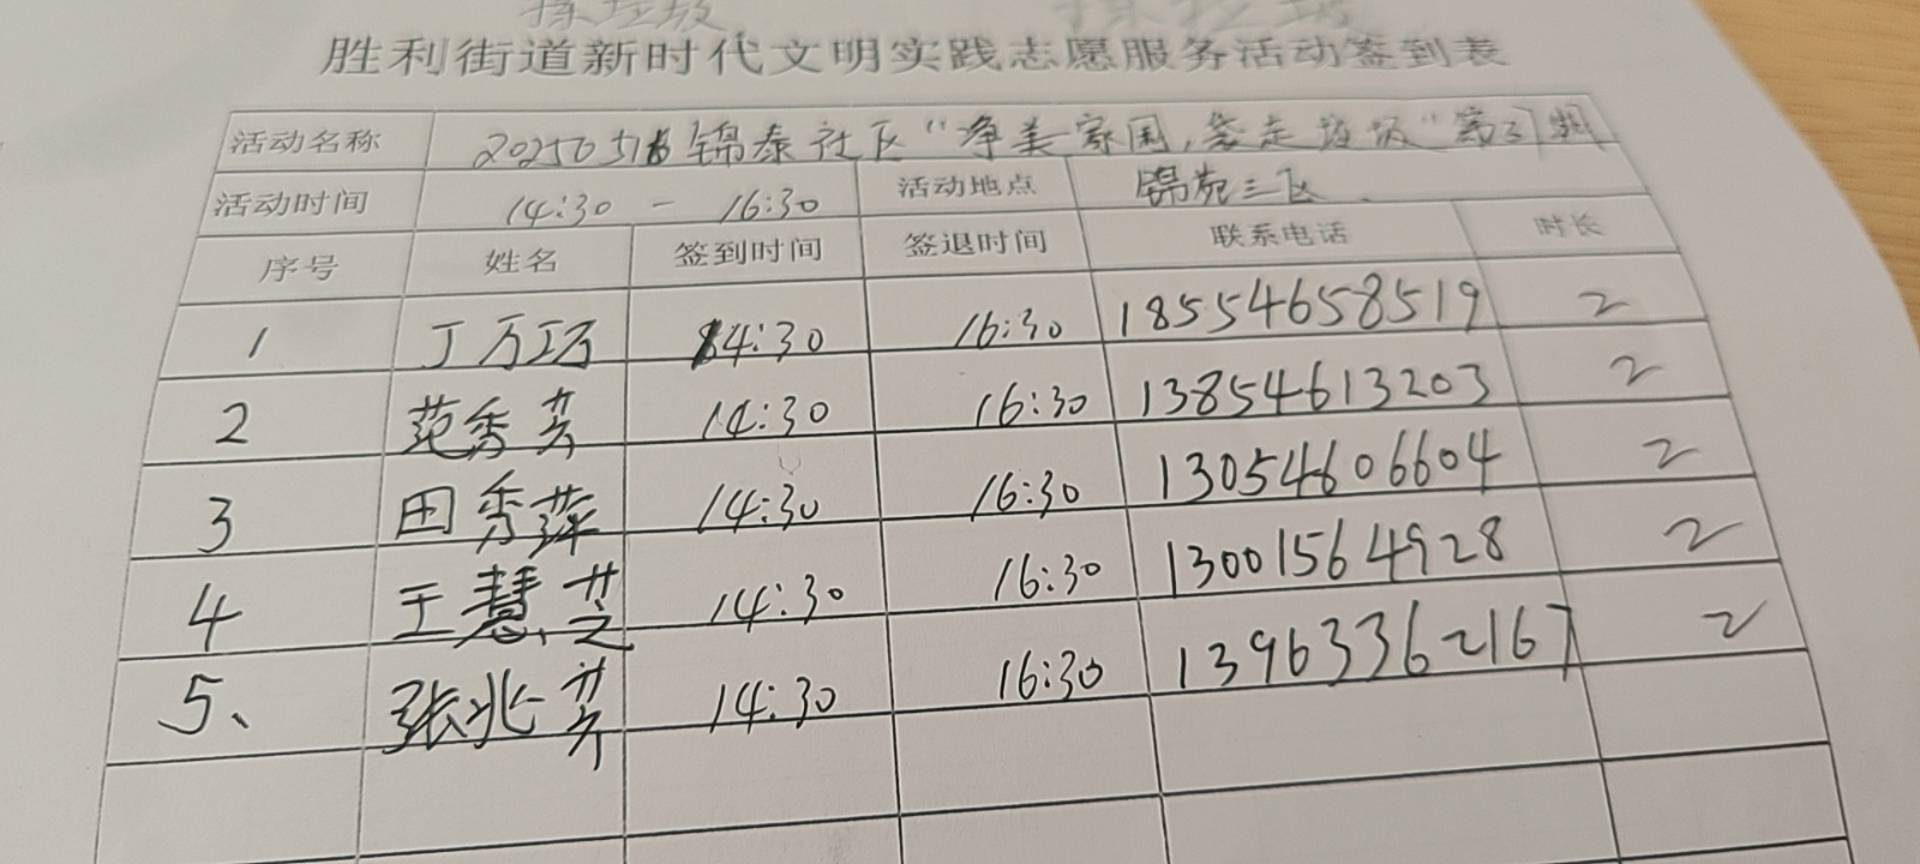 胜利街道新时代文明实践志愿服务活动签到表
活动名称 20250516锦泰社区“净美家园,袋走垃圾”第 期
活动时间 14:30 - 16:30 活动地点 锦苑三区
序号 姓名 签到时间 签退时间 联系电话 时长
1 丁万巧 14:30 16:30 18554658519 2
2 范秀芳 14:30 16:30 13854613203 2
3 田秀萍 14:30 16:30 13054606604 2
4 王慧芝 14:30 16:30 13001564928 2
5、 张兆芳 14:30 16:30 13963362167 2